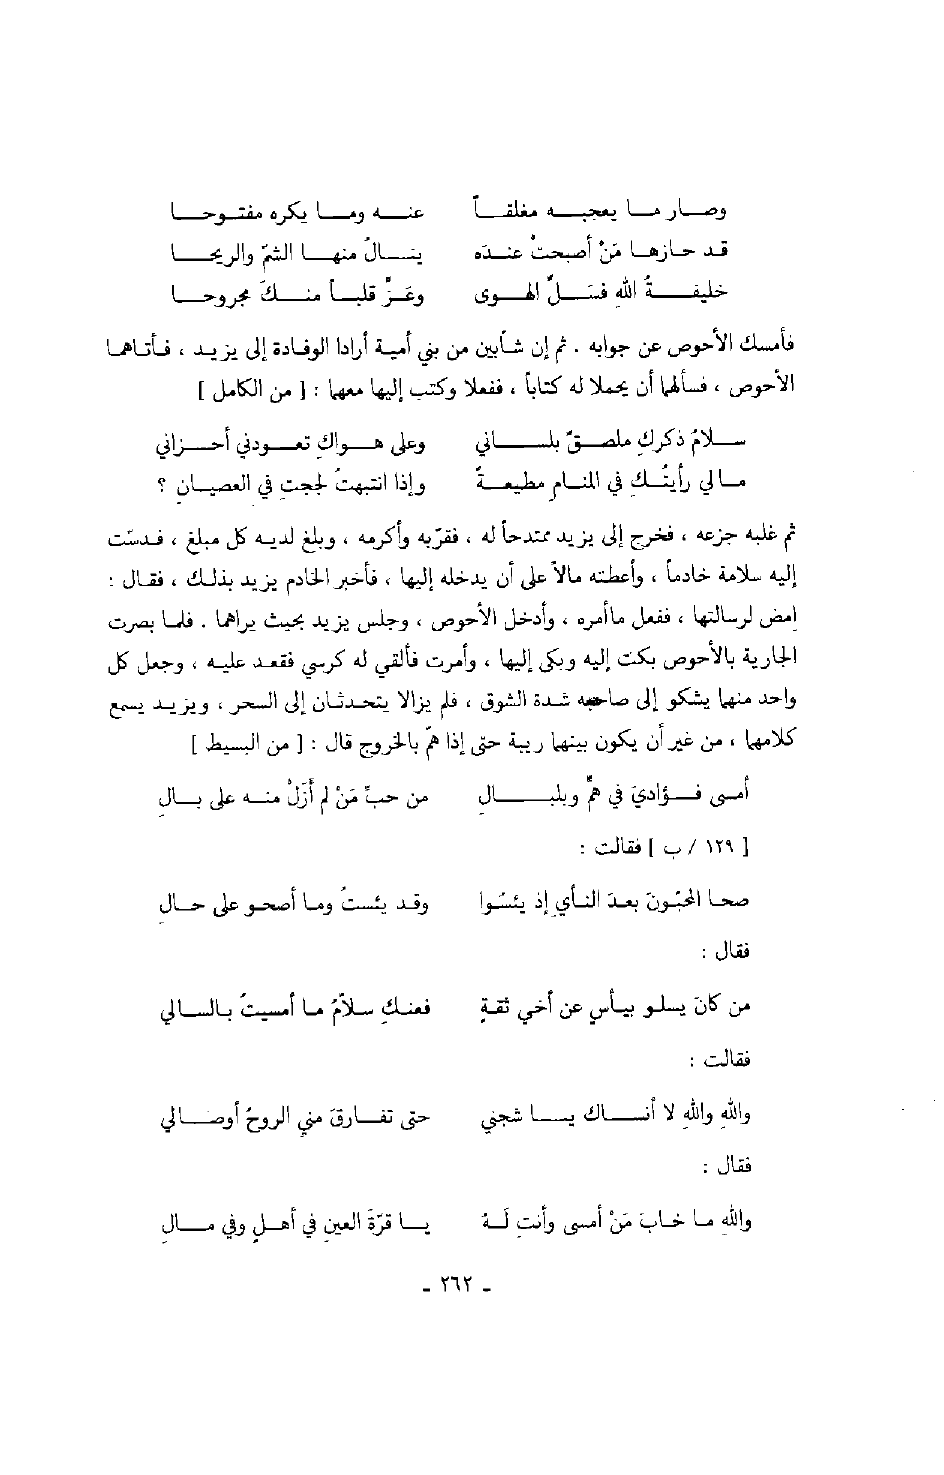 وصـار مـا يعجبـه مغلقـاً عنـه ومـا يكره مفتـوحـا
قـد حـازهـا مَنْ أصبحتُ عنـدَه ينـالُ منهـا الشمَّ والريحـا
خليفـةُ اللهِ فسَـلِّ الهـوى وعَـزِّ قلبـاً منـكَ مجروحـا
فأمسك الأحوص عن جوابه . ثم إن شابين من بني أمية أرادا الوفادة إلى يزيـد ، فـأتاهما
الأحوص ، فسألهما أن يحملا له كتاباً ، ففعلا وكتب إليها معهما : [ من الكامل ]
سـلامُ ذكركِ ملصـقٌ بلسـاني وعلى هـواكِ تعـودني أحـزاني
مـالي رأيتُـكِ في المنـامِ مطيعـةً وإذا انتبهتُ لججتِ في العصيـانِ ؟
ثم غلبه جزعه ، فخرج إلى يزيد ممتدحاً له ، فقرّبه وأكرمه ، وبلغ لديـه كل مبلغ ، فـدسّت
إليه سلامة خادماً ، وأعطته مالاً على أن يدخله إليها ، فأخبر الخادم يزيد بذلك ، فقال :
امض لرسالتها ، ففعل ماأمره ، وأدخل الأحوص ، وجلس يزيد بحيث يراهما . فلما بصرت
الجارية بالأحوص بكت إليه وبكى إليها ، وأمرت فألقي له كرسي فقعد عليه ، وجعل كل
واحد منهما يشكو إلى صاحبه شدة الشوق ، فلم يزالا يتحدثـان إلى السحر ، ويزيـد يسمع
كلامهما ، من غير أن يكون بينهما ريبة حتى إذا همّ بالخروج قال : [ من البسيط ]
أمسى فـؤاديَ في همٍّ وبلبـالِ من حبِّ مَنْ لم أزَلْ منـه على بـالِ
[ ١٢٩ / ب ] فقالت :
صحـا المحبّونَ بعـدَ النـأيِ إذ يئسُوا وقـد يئسـتُ ومـا أصحـو على حـالِ
فقال :
من كانَ يسلـو بيأسٍ عن أخي ثقةٍ فعنـكِ سـلاّمُ مـا أمسيتُ بـالسـالي
فقالت :
واللهِ واللهِ لا أنسـاك يـا شجني حتى تفـارقَ مني الروحُ أوصـالي
فقال :
واللهِ مـا خـابَ مَنْ أمسى وأنتِ لَـهُ يـا قرّةَ العينِ في أهـلٍ وفي مـالِ
- ٢٦٢ -